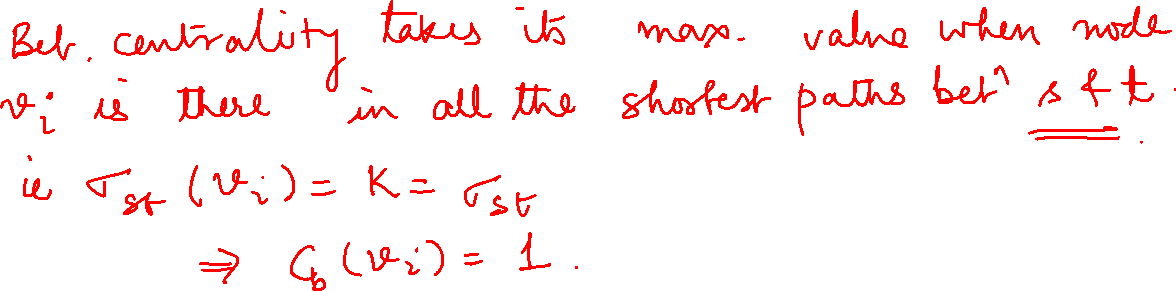 Bet. centrality takes its max. value when node
v_i is there in all the shortest paths betⁿ s & t.
ie σ_st (v_i) = K = σ_st
⇒ C_b (v_i) = 1.